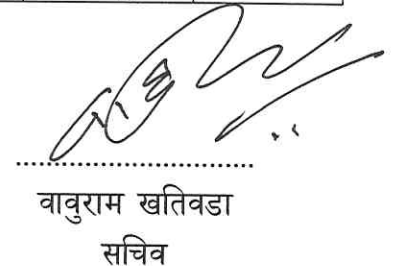 वावुराम खतिवडा
सचिव